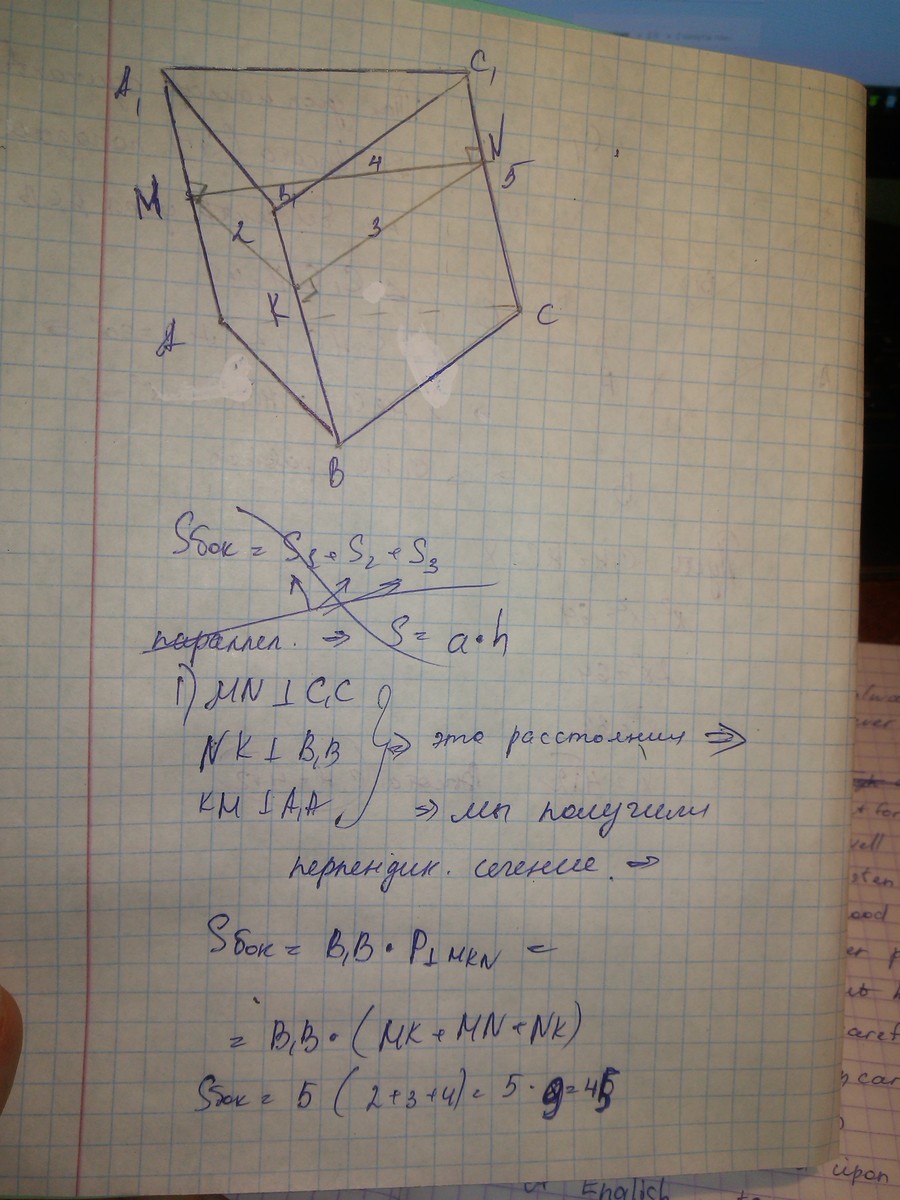 A₁ C₁
M 4 N
B₁ 5
2 3
K
A C
B
Sбок = S₁ + S₂ + S₃
параллел. ⇒ S = a·h
1) MN ⊥ C₁C
NK ⊥ B₁B ⇒ это расстояния ⇒
KM ⊥ A₁A ⇒ мы получили
перпендик. сечение ⇒
Sбок = B₁B · P⊥MKN =
= B₁B · (MK + MN + NK)
Sбок = 5 (2+3+4) = 5 · 9 = 45
upon
English